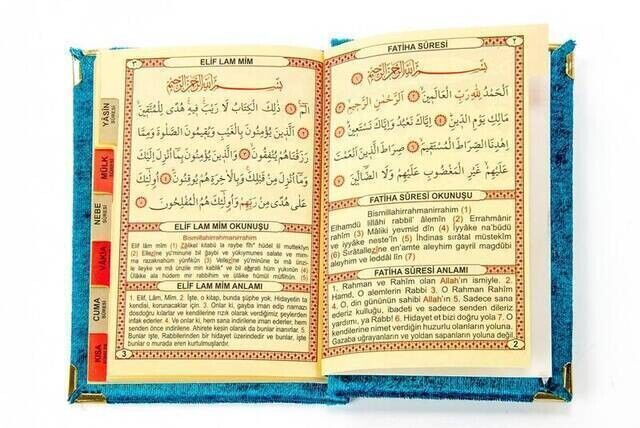 FATİHA SÛRESİ
٢
بِسْمِ اللّٰهِ الرَّحْمٰنِ الرَّحِيمِ
اَلْحَمْدُ لِلّٰهِ رَبِّ الْعَالَمِينَ اَلرَّحْمٰنِ الرَّحِيمِ
مَالِكِ يَوْمِ الدِّينِ اِيَّاكَ نَعْبُدُ وَاِيَّاكَ نَسْتَعِينُ
اِهْدِنَا الصِّرَاطَ الْمُسْتَقِيمَ صِرَاطَ الَّذِينَ اَنْعَمْتَ
عَلَيْهِمْ غَيْرِ الْمَغْضُوبِ عَلَيْهِمْ وَلَا الضَّالِّينَ
FATİHA SÛRESİ OKUNUŞU
Bismillahirrahmanirrahim (1)
Elhamdü lillâhi rabbil' âlemîn (2) Errahmânir
rahîm (3) Mâliki yevmid dîn (4) Iyyâke na'büdü
ve iyyâke neste'în (5) İhdinas sırâtal müstekîm
(6) Sırâtallezîne en'amte aleyhim gayril magdûbi
aleyhim ve leddâl lîn (7)
FATİHA SÛRESİ ANLAMI
1. Rahman ve Rahim olan Allah'ın ismiyle. 2.
Hamd, O alemlerin Rabbi 3. O Rahman Rahim
4. O, din gününün sahibi Allah'ın 5. Sadece sana
ederiz kulluğu, ibadeti ve sadece senden dileriz
yardımı, ya Rabb! 6. Hidayet et bizi doğru yola 7. O
kendilerine nimet verdiğin huzurlu olanların yoluna.
Gazaba uğrayanların ve yoldan sapanların yoluna değil.
2
ELİF LAM MİM
٣
بِسْمِ اللّٰهِ الرَّحْمٰنِ الرَّحِيمِ
الٓمٓ ذٰلِكَ الْكِتَابُ لَا رَيْبَ فِيهِ هُدًى لِلْمُتَّقِينَ
اَلَّذِينَ يُؤْمِنُونَ بِالْغَيْبِ وَيُقِيمُونَ الصَّلٰوةَ وَمِمَّا
رَزَقْنَاهُمْ يُنْفِقُونَ وَالَّذِينَ يُؤْمِنُونَ بِمَا اُنْزِلَ اِلَيْكَ
وَمَا اُنْزِلَ مِنْ قَبْلِكَ وَبِالْاٰخِرَةِ هُمْ يُوقِنُونَ اُولٰئِكَ
عَلٰى هُدًى مِنْ رَبِّهِمْ وَاُولٰئِكَ هُمُ الْمُفْلِحُونَ
ELİF LAM MİM OKUNUŞU
Bismillahirrahmanirrahim
Elif lâm mîm (1) Zâlikel kitabü la raybe fîh* hüdel lil muttekîyn
(2) Ellezîne yü'minune bil ğaybi ve yükıymunes salate ve mim-
ma razaknahüm yünfikûn (3) Vellezîne yü'minune bi mâ ünzi-
le ileyke ve mâ ünzile min kablik* ve bil
Ülâike alâ hüdem mir rabbihim ve ülâike hümül müflihûn (5)
ELİF LAM MİM ANLAMI
1. Elif, Lâm, Mîm. 2. İşte, o kitap, bunda şüphe yok, Hidayetin ta
kendisi, korunacaklar için. 3. Onlar ki, gayba iman edip namazı
dosdoğru kılarlar ve kendilerine rızık olarak verdiğimiz şeylerden
infak ederler. 4. Ve onlar ki, hem sana indirilene iman ederler, hem
senden önce indirilene. Ahirete kesin olarak da bunlar inanırlar. 5.
Bunlar işte, Rabblerinden bir hidayet üzerindedir ve bunlar, işte
bunlar o murada eren kurtulmuşlardır.
3
YÂSİN
SÛRESİ
MÜLK
SÛRESİ
NEBE
SÛRESİ
VAKIA
CUMA
SÛRESİ
KISA